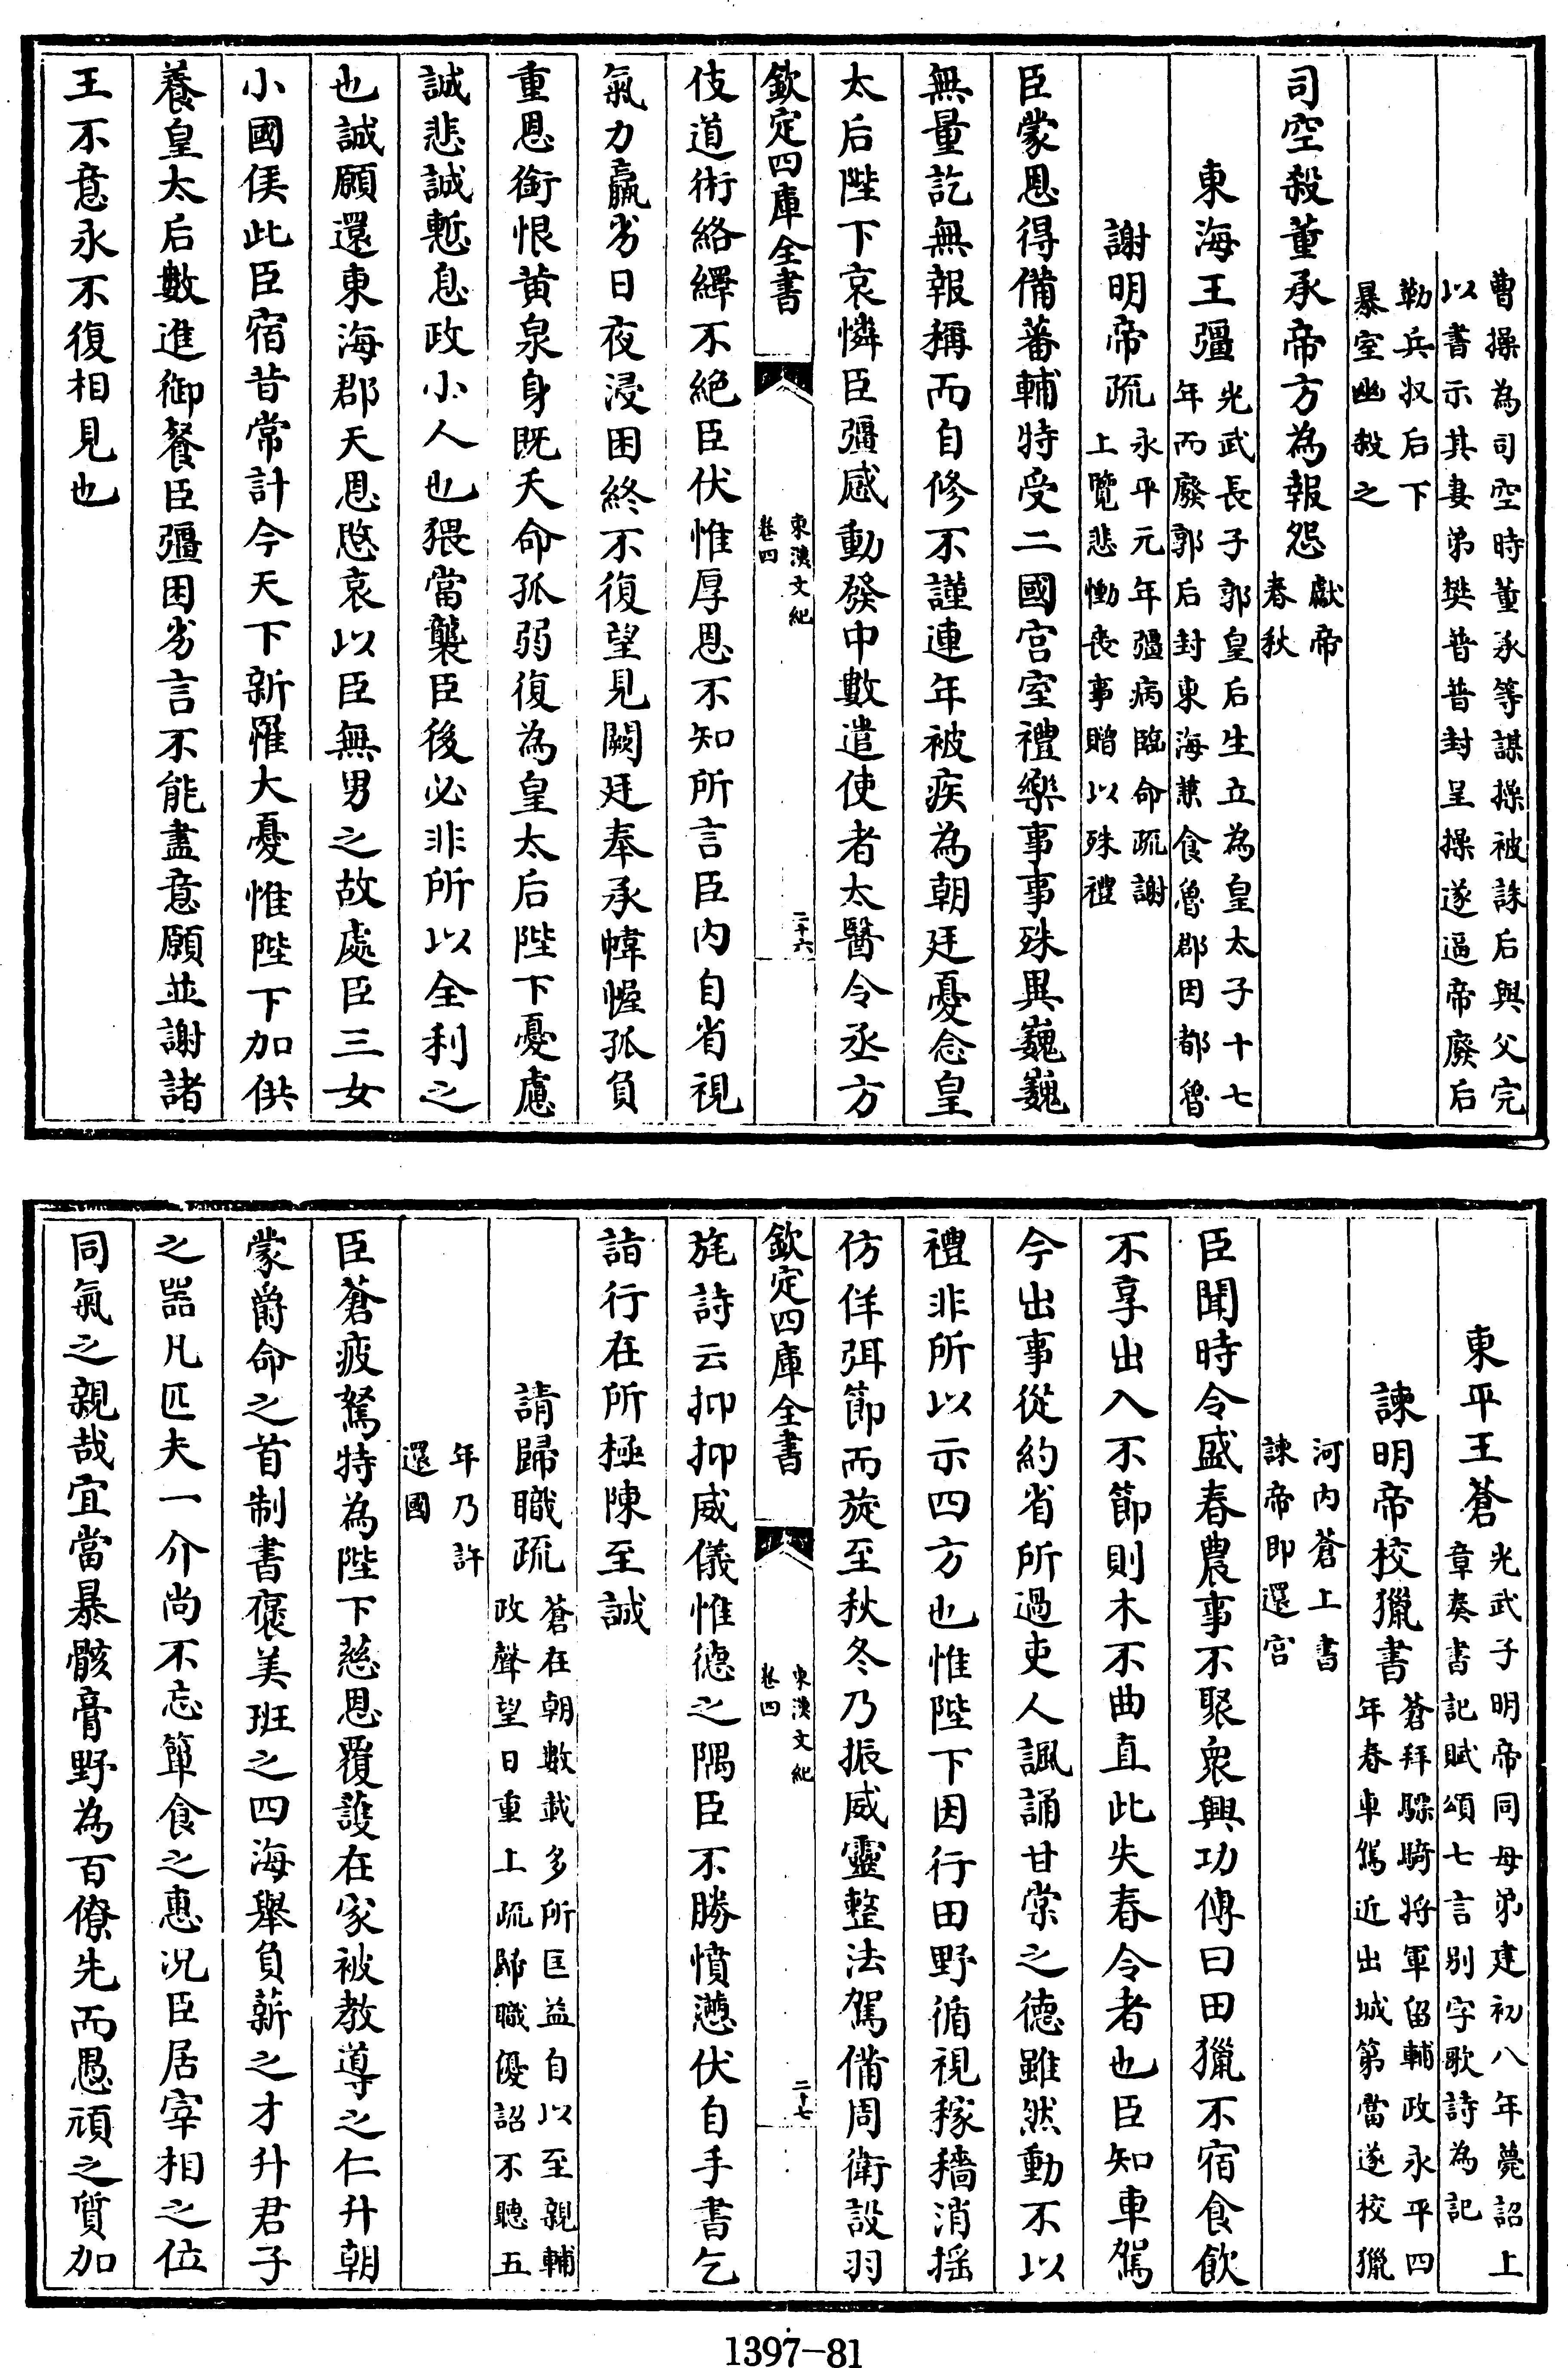 曹操為司空時董承等謀操被誅后與父完
以書示其妻弟樊普普封呈操遂逼帝廢后
勒兵収后下
暴室幽殺之
司空殺董承帝方為報怨獻帝
春秋
東海王彊光武長子郭皇后生立為皇太子十七
年而廢郭后封東海兼食魯郡因都魯
謝明帝疏永平元年彊病臨命疏謝
上覽悲慟喪事贈以殊禮
臣蒙恩得備蕃輔特受二國宫室禮樂事事殊異巍巍
無量訖無報稱而自修不謹連年被疾為朝廷憂念皇
太后陛下哀憐臣彊感動發中數遣使者太醫令丞方
欽定四庫全書
東漢文紀
卷四
二十六
伎道術絡繹不絶臣伏惟厚恩不知所言臣内自省視
氣力羸劣日夜浸困終不復望見闕廷奉承幃幄孤負
重恩銜恨黄泉身既夭命孤弱復為皇太后陛下憂慮
誠悲誠慙息政小人也猥當襲臣後必非所以全利之
也誠願還東海郡天恩愍哀以臣無男之故處臣三女
小國侯此臣宿昔常計今天下新罹大憂惟陛下加供
養皇太后數進御餐臣彊困劣言不能盡意願並謝諸
王不意永不復相見也
東平王蒼光武子明帝同母弟建初八年薨詔上
章奏書記賦頌七言别字歌詩為記
諫明帝校獵書蒼拜驃騎將軍留輔政永平四
年春車駕近出城第當遂校獵
河内蒼上書
諫帝即還宫
臣聞時令盛春農事不聚衆興功傳曰田獵不宿食飲
不享出入不節則木不曲直此失春令者也臣知車駕
今出事從約省所過吏人諷誦甘棠之德雖然動不以
禮非所以示四方也惟陛下因行田野循視稼穡消揺
仿佯弭節而旋至秋冬乃振威靈整法駕備周衛設羽
欽定四庫全書
東漢文紀
卷四
二十七
旄詩云抑抑威儀惟德之隅臣不勝憤懣伏自手書乞
詣行在所極陳至誠
請歸職疏蒼在朝數載多所匡益自以至親輔
政聲望日重上疏歸職優詔不聽五
年乃許
還國
臣蒼疲駑特為陛下慈恩覆護在家被教導之仁升朝
蒙爵命之首制書褒美班之四海舉負薪之才升君子
之器凡匹夫一介尚不忘簞食之惠况臣居宰相之位
同氣之親哉宜當暴骸膏野為百僚先而愚頑之質加
1397-81